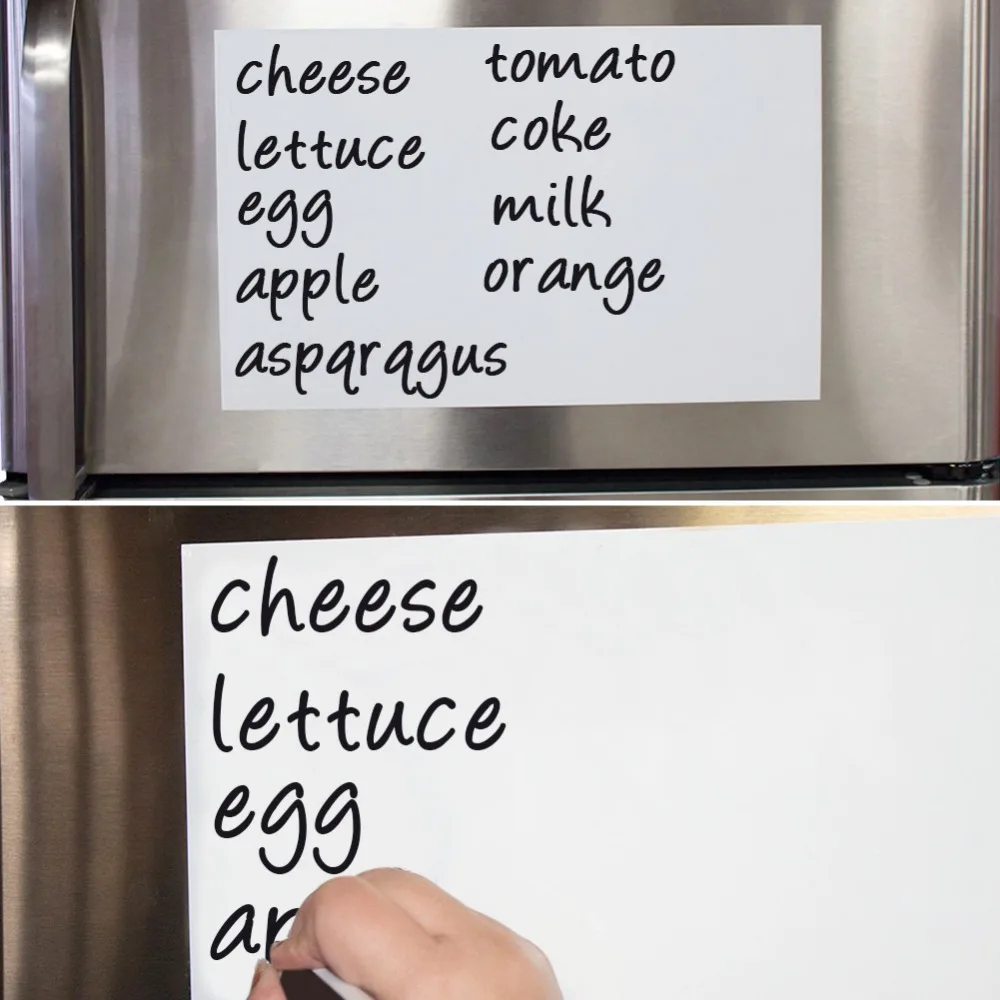 cheese
lettuce
egg
apple
aspqrqgus
tomato
coke
milk
orange
cheese
lettuce
egg
ap